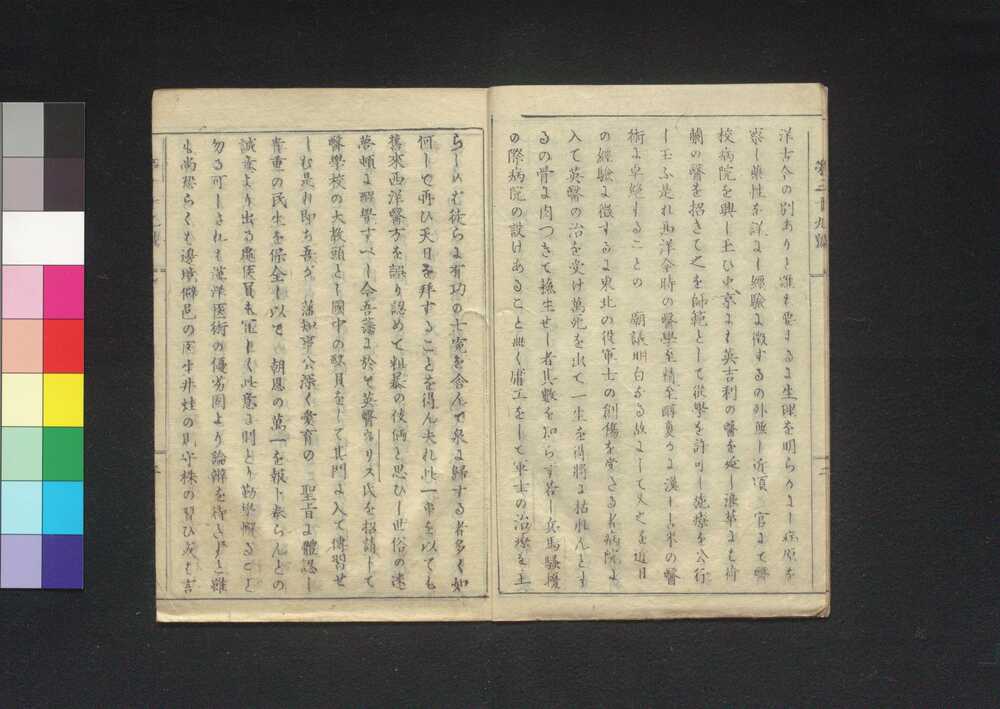 洋古今の別ありと雖も要するに生理を明らかにし病原を
察し藥性を詳にし經驗に徴するの外無し近頃 官にて醫
校病院を興し玉ひ東京にも英吉利の醫を延し浪華にも荷
蘭の醫を招きて之を師範として從學を許可し施療を公行
し玉ふ是れ西洋今時の醫學至精至醇夐かに漢土古来の醫
術に卓絶することの 廟議明白なる故にして又之を近日
の經驗に徴するに東北の役軍士の創傷を蒙る者病院に
入て英醫の治を受け萬死を出て一生を得將に枯れんとす
るの骨に肉つきて蘇生せし者其數を知らす若し兵馬騷擾
の際病院の設けあること無く庸工をして軍士の治療を主
らしめは徒らに有功の士寃を含んて泉に歸する者多く如
何して再ひ天日を拜することを得ん夫れ此一事を以ても
舊來西洋醫方を誤り認めて粗暴の伎倆と思ひし世俗の迷
夢頓に醒覺すへし今吾藩に於て英醫ウリス氏を招請して
醫學校の大教頭とし國中の醫員をして其門に入て傳習せ
しむ是れ即ち吾か 藩知事公深く愛育の 聖旨に體認し
貴重の民生を保全し以て 朝恩の萬一を報し奉らんとの
誠意より出る處醫員も宜しく此意に則とり勤學懈ること
勿る可しされも漢洋醫術の優劣固より論辯を待さすと雖
も尚恐らくは邊境僻邑の醫生井蛙の見守株の習ひ或は言